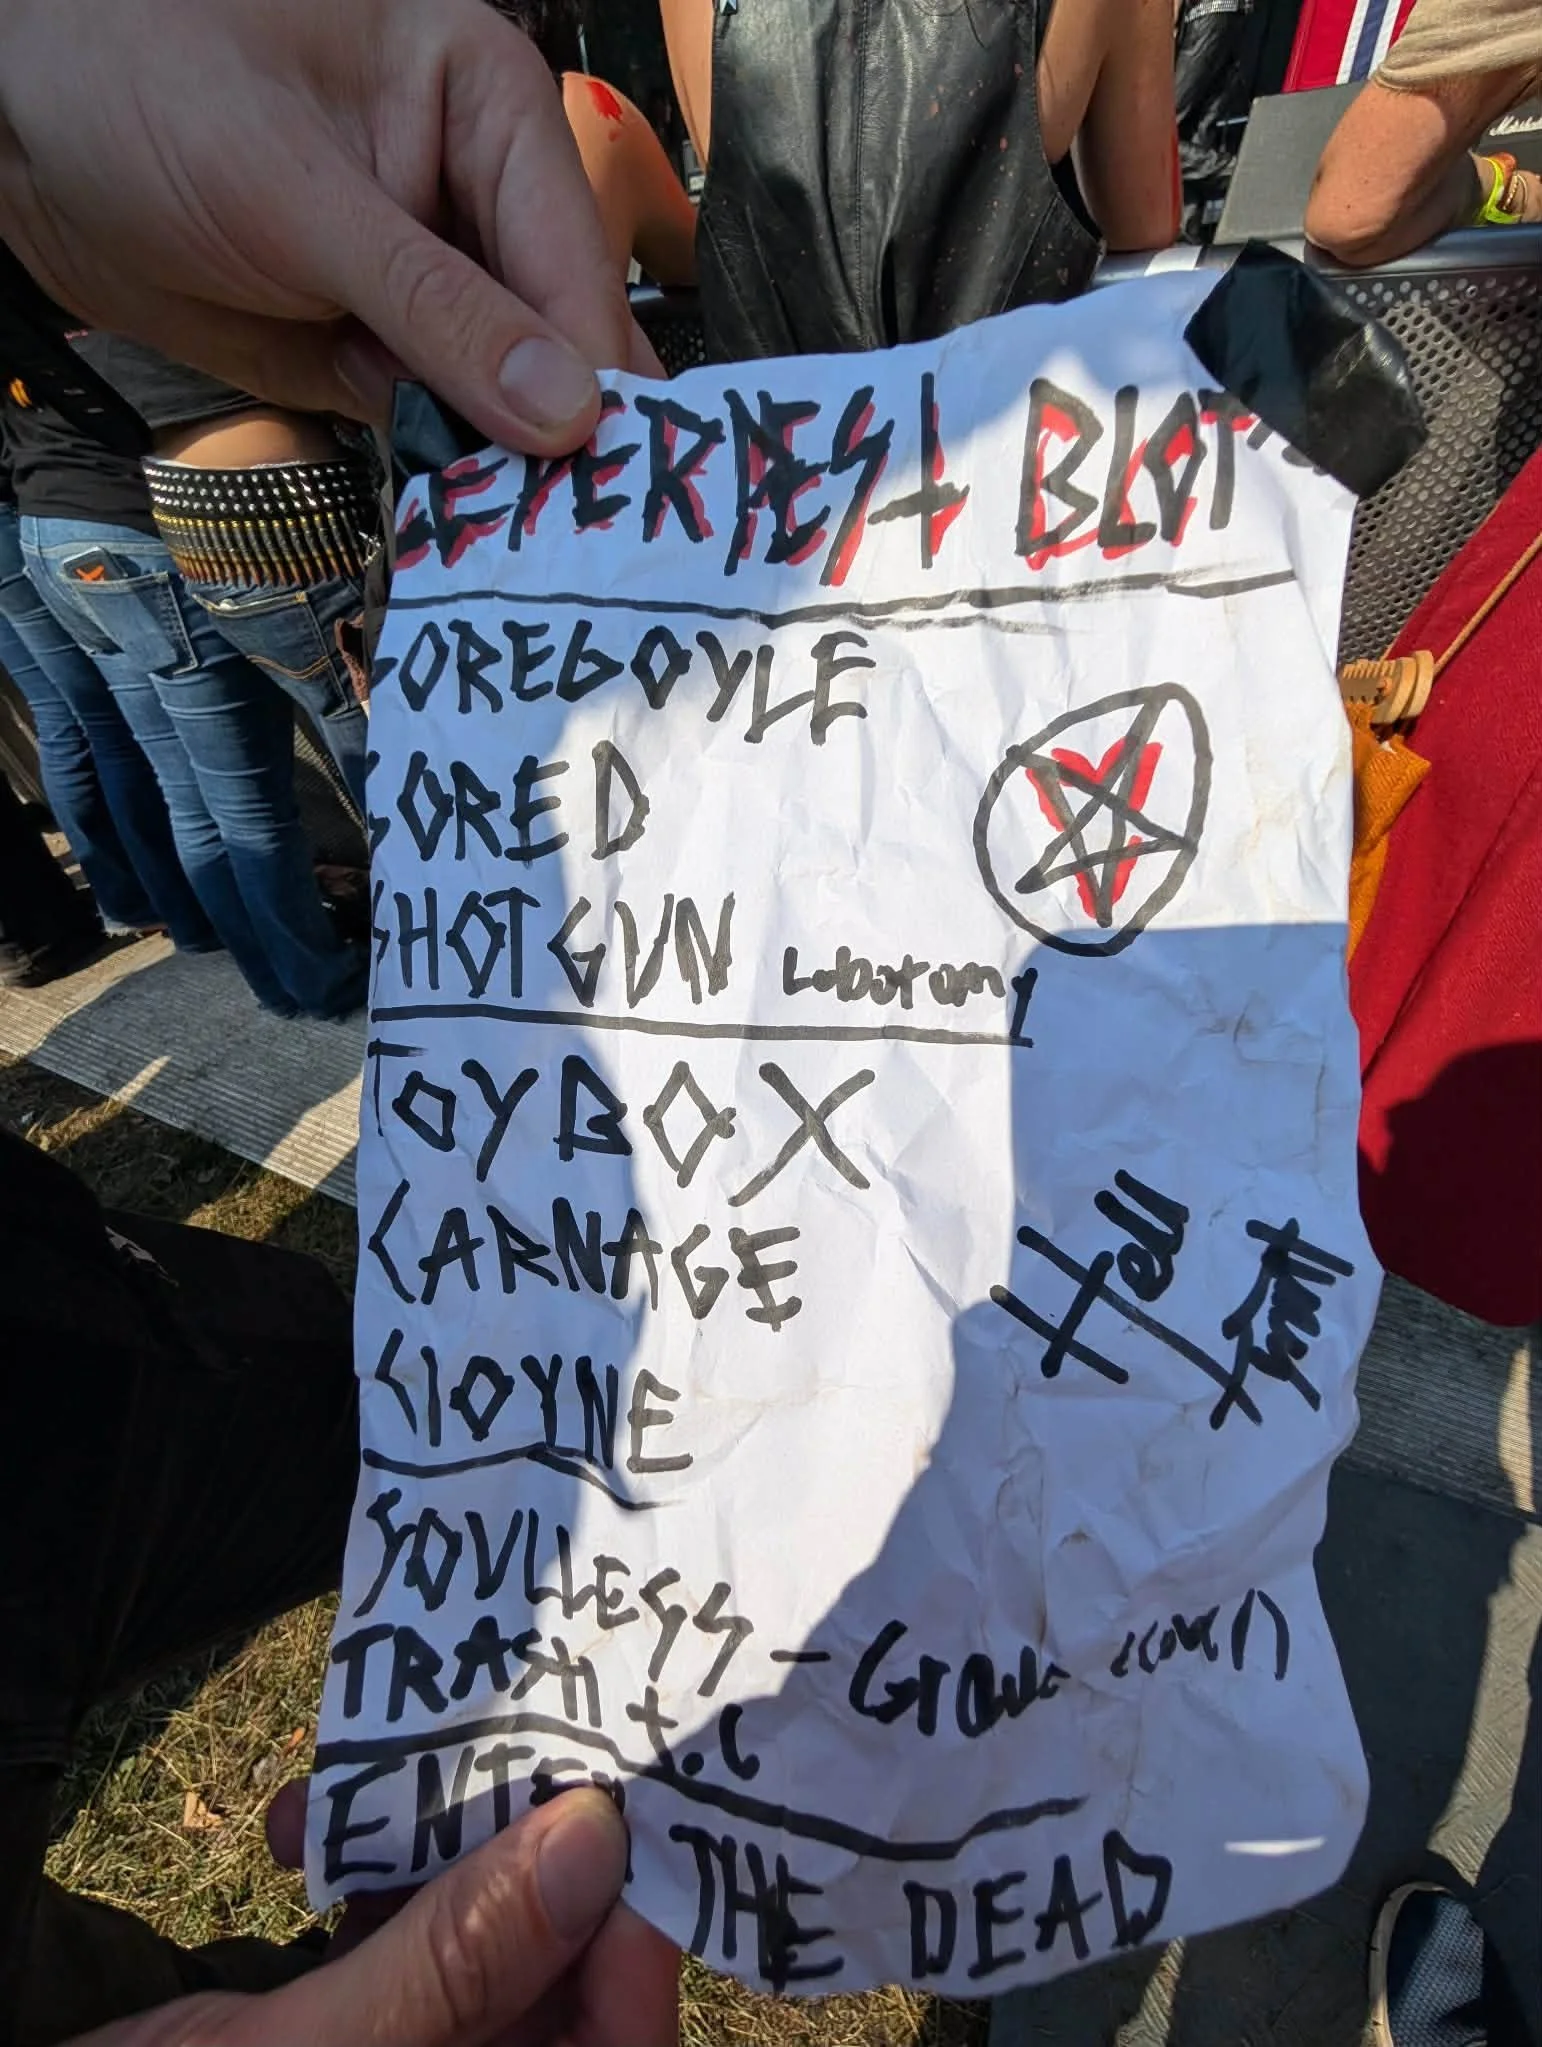 LEPERPEST BLOT
GOREGOYLE
GORED
SHOTGUN Lobotomy
TOYBOX
CARNAGE
CLOYNE
SOULLESS
TRASH t.c - Grave (cover)
ENTER THE DEAD